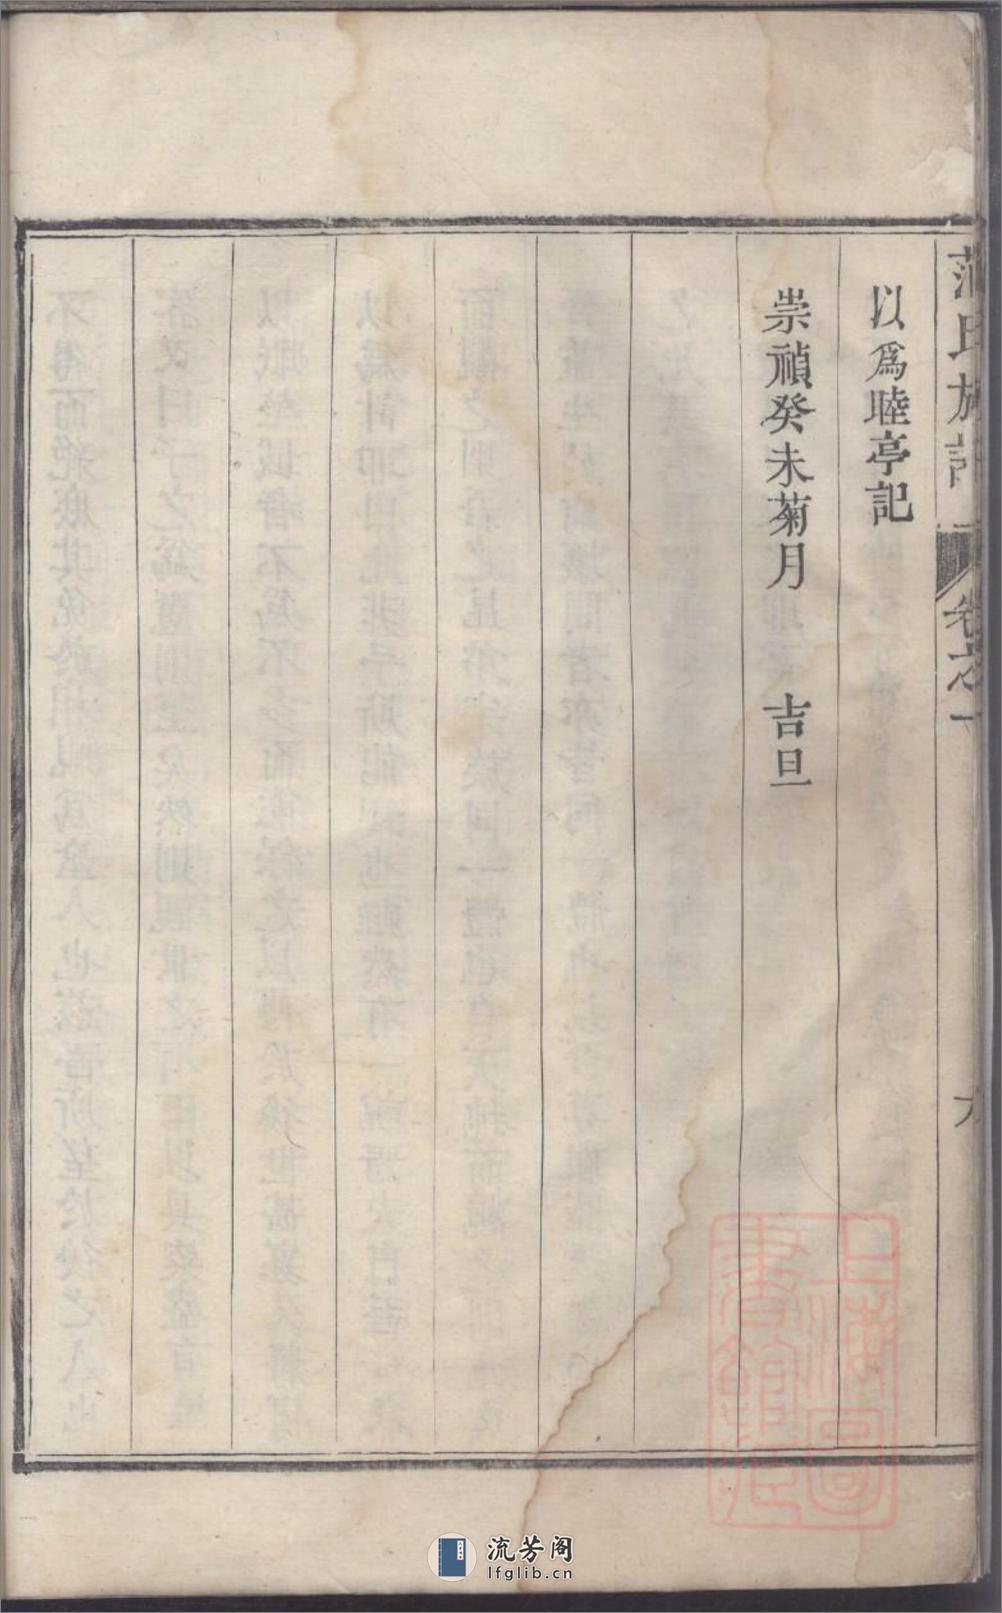 以爲睦亭記
崇禎癸未菊月　吉旦
氏族
卷之一
上海圖書館藏
流芳阁
lfglib.cn